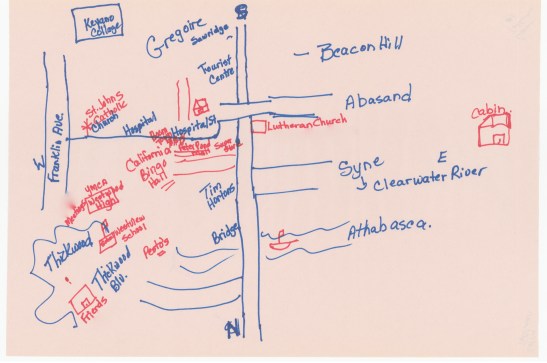 Keyano
College
S
Gregoire
Sawridge
Tourist
Centre
Beacon Hill
Abasand
Cabin
St. John's
Catholic
Church
Hospital
Hospital St.
Lutheran Church
W
Franklin Ave.
California
Bingo
Hall
Peter Pond
Mall
YMCA
Westwood
High
Tim
Hortons
Syne
E
Clearwater River
Thickwood
School
Bridge
Athabasca.
Thickwood
Blv.
Friends
N